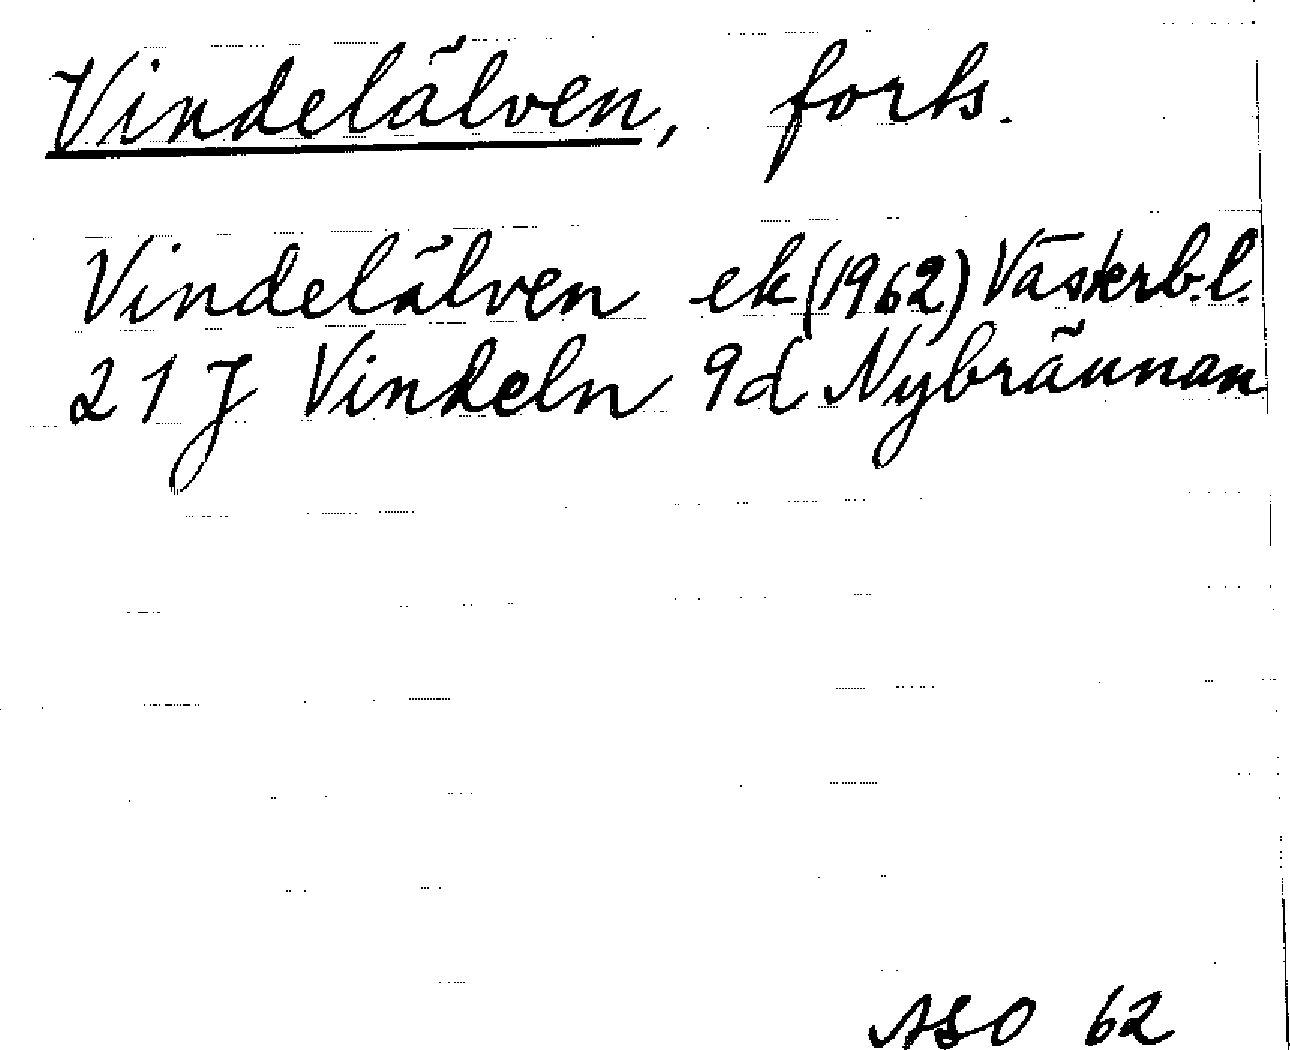 Vindelälven, forts.
Vindelälven ek (1962) Västerb.l.
21 J Vindeln 9d Nybrännan
ASO 62